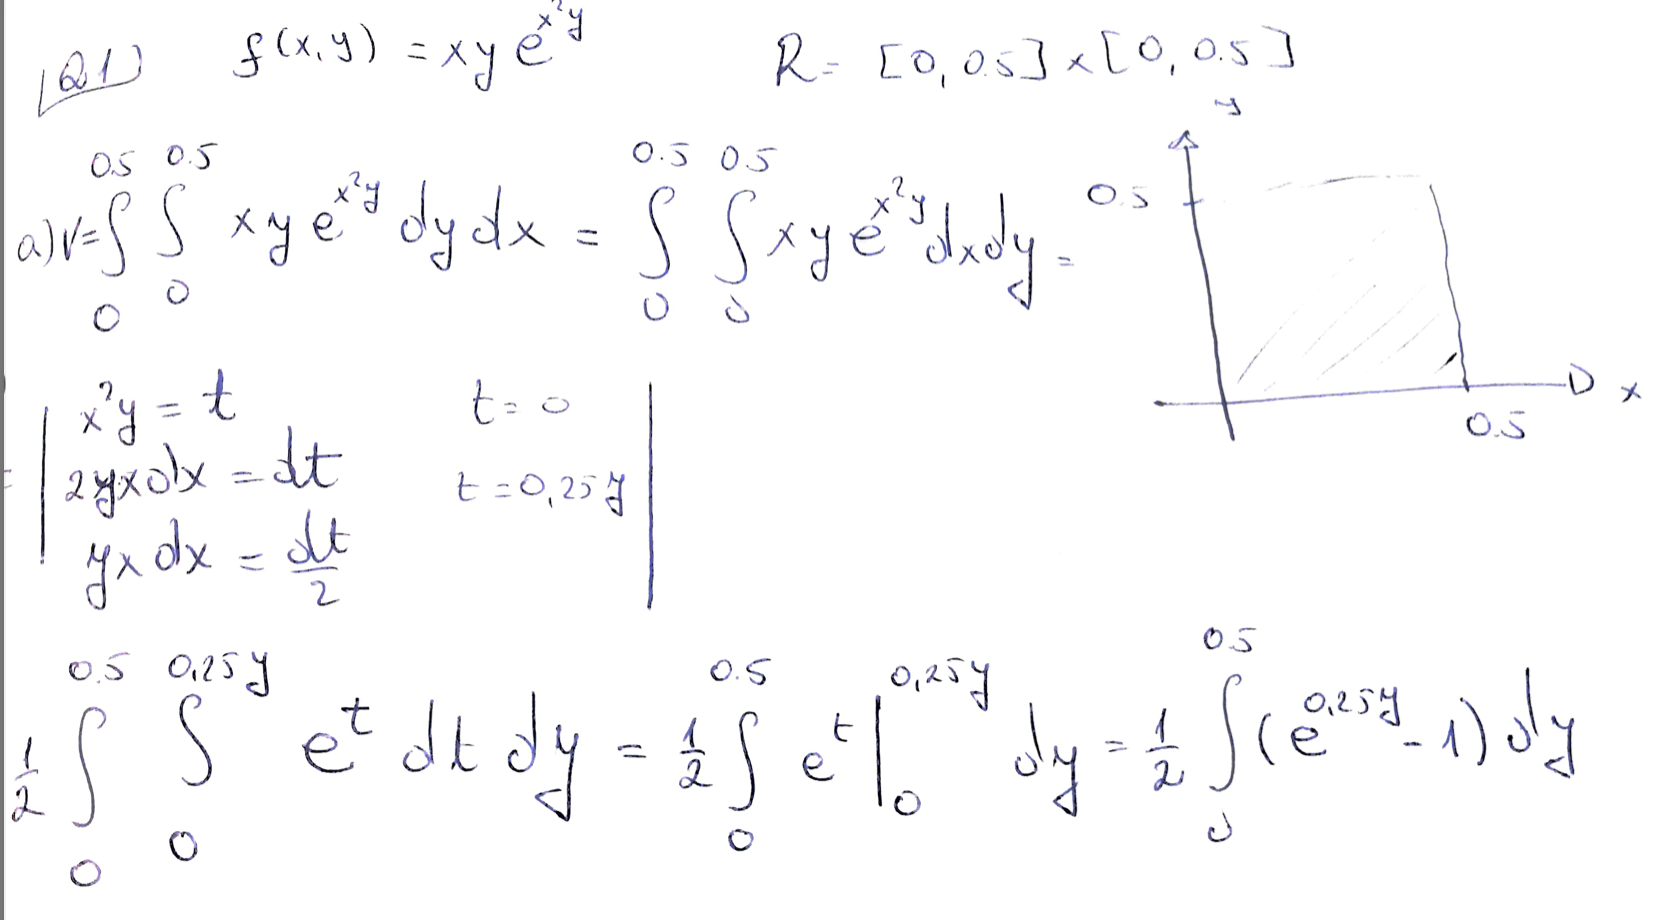 Q1) f(x,y) = xy e^{x²y} R = [0, 0.5] × [0, 0.5]
a) V = ∫_0^{0.5} ∫_0^{0.5} xy e^{x²y} dy dx = ∫_0^{0.5} ∫_0^{0.5} xy e^{x²y} dx dy =
y
0.5
0.5
x
= | x²y = t t = 0 |
2yx dx = dt t = 0,25y
yx dx = dt/2
1/2 ∫_0^{0.5} ∫_0^{0,25y} e^t dt dy = 1/2 ∫_0^{0.5} e^t |_0^{0,25y} dy = 1/2 ∫_0^{0.5} (e^{0,25y} - 1) dy